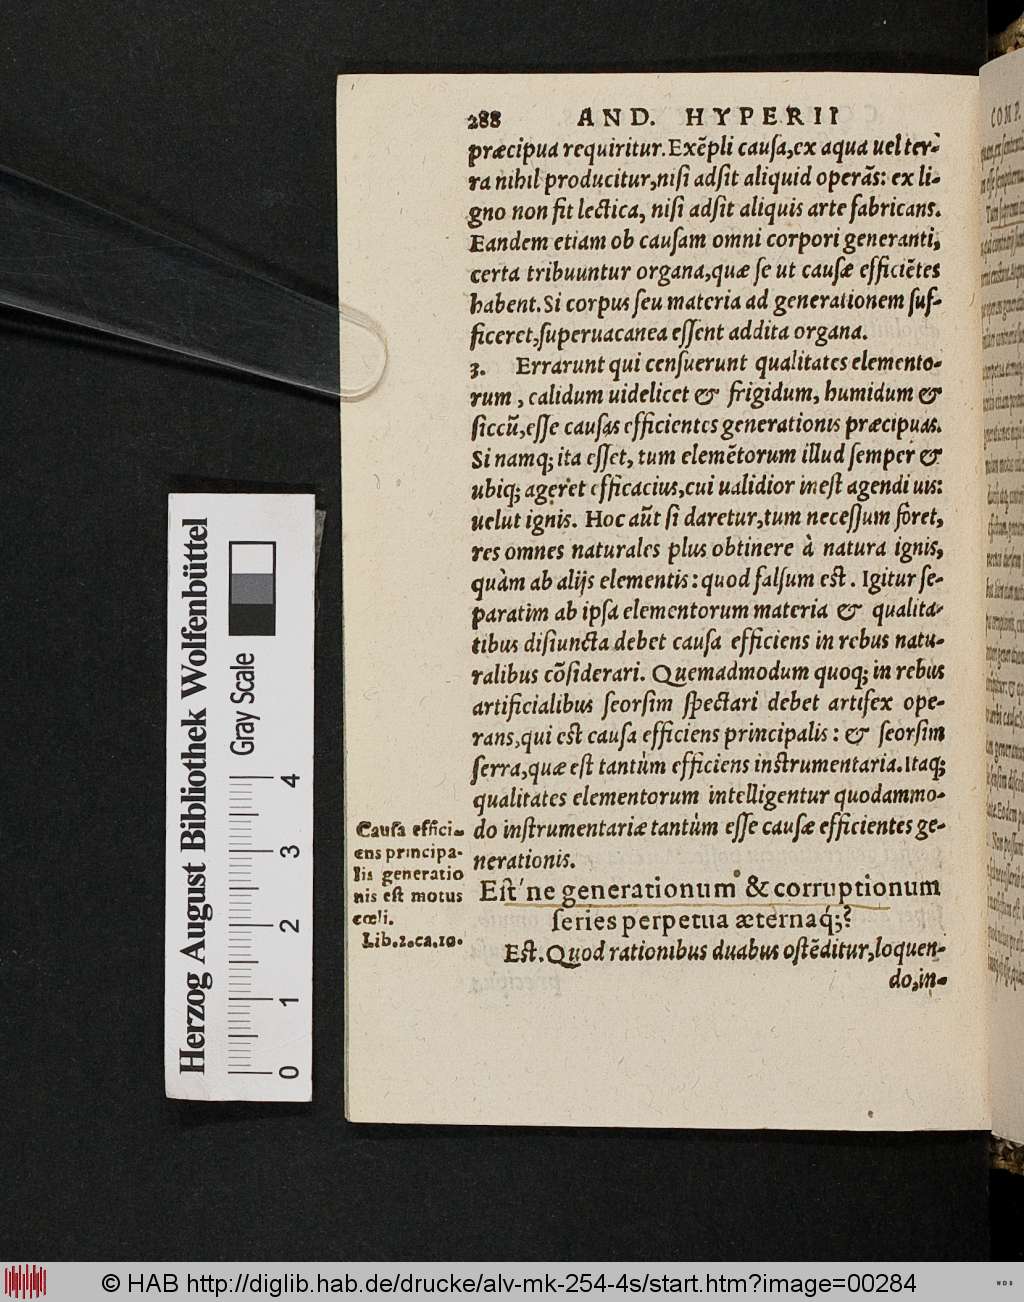 288 AND. HYPERII
præcipua requiritur. Exẽpli cauſa, ex aqua uel ter-
ra nihil producitur, niſi adſit aliquid operãs: ex li-
gno non fit lectica, niſi adſit aliquis arte fabricans.
Eandem etiam ob cauſam omni corpori generanti,
certa tribuuntur organa, quæ ſe ut cauſæ efficiẽtes
habent. Si corpus ſeu materia ad generationem ſuf-
ficeret, ſuperuacanea eſſent addita organa.
3. Errarunt qui cenſuerunt qualitates elemento-
rum, calidum uidelicet & frigidum, humidum &
ſiccũ, eſſe cauſas efficientes generationis præcipuas.
Si namq; ita eſſet, tum elemẽtorum illud ſemper &
ubiq; ageret efficacius, cui ualidior ineſt agendi uis:
uelut ignis. Hoc aũt ſi daretur, tum neceſſum foret,
res omnes naturales plus obtinere à natura ignis,
quàm ab alijs elementis: quod falſum eſt. Igitur ſe-
paratim ab ipſa elementorum materia & qualita-
tibus diſiuncta debet cauſa efficiens in rebus natu-
ralibus cõſiderari. Quemadmodum quoq; in rebus
artificialibus ſeorſim ſpectari debet artifex ope-
rans, qui eſt cauſa efficiens principalis: & ſeorſim
ſerra, quæ eſt tantùm efficiens inſtrumentaria. Itaq;
qualitates elementorum intelligentur quodammo-
do inſtrumentariæ tantùm eſſe cauſæ efficientes ge-
nerationis.
Cauſa effici-
ens principa-
lis generatio
nis eſt motus
cœli.
Lib.2.ca.10.
Eſt'ne generationum & corruptionum
ſeries perpetua æternaq́;?
Eſt. Quod rationibus duabus oſtẽditur, loquen-
do, in-
COMP.
Herzog August Bibliothek Wolfenbüttel
Gray Scale
0 1 2 3 4
© HAB http://diglib.hab.de/drucke/alv-mk-254-4s/start.htm?image=00284
WDB